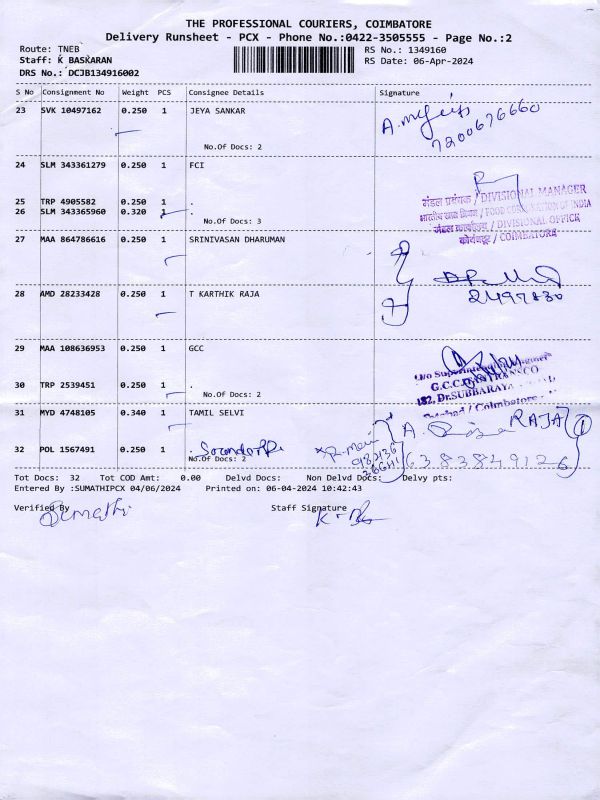 THE PROFESSIONAL COURIERS, COIMBATORE
Delivery Runsheet - PCX - Phone No.:0422-3505555 - Page No.:2
Route: TNEB
RS No.: 1349160
Staff: K BASKARAN
RS Date: 06-Apr-2024
DRS No.: DCJB134916002
S No Consignment No Weight PCS Consignee Details Signature
23 SVK 10497162 0.250 1 JEYA SANKAR
7200676660
No.Of Docs: 2
24 SLM 343361279 0.250 1 FCI
मंडल प्रबंधक / DIVISIONAL MANAGER
25 TRP 4905582 0.250 1 .
भारतीय खाद्य निगम / FOOD CORPORATION OF INDIA
26 SLM 343365960 0.320 1 .
No.Of Docs: 3
मंडल कार्यालय / DIVISIONAL OFFICE
कोयंबटूर / COIMBATORE
27 MAA 864786616 0.250 1 SRINIVASAN DHARUMAN
28 AMD 28233428 0.250 1 T KARTHIK RAJA
2497830
29 MAA 108636953 0.250 1 GCC
30 TRP 2539451 0.250 1 .
No.Of Docs: 2
182, Dr.SUBBARAYA
/ Coimbatore
31 MYD 4748105 0.340 1 TAMIL SELVI
A. RAJA 1
32 POL 1567491 0.250 1 .
6383849126
No.Of Docs: 2
Tot Docs: 32 Tot COD Amt: 0.00 Delvd Docs: Non Delvd Docs: Delvy pts:
Entered By :SUMATHIPCX 04/06/2024 Printed on: 06-04-2024 10:42:43
Verified By
Staff Signature
Sumathi